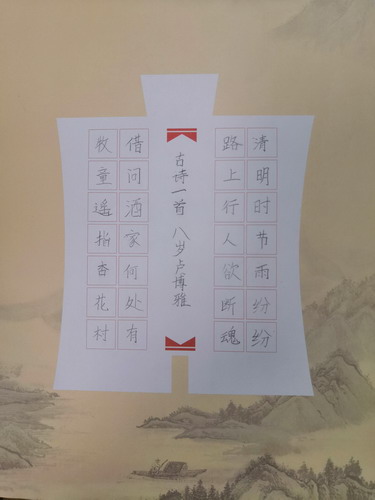 清明时节雨纷纷
路上行人欲断魂
古诗一首 八岁卢博雅
借问酒家何处有
牧童遥指杏花村